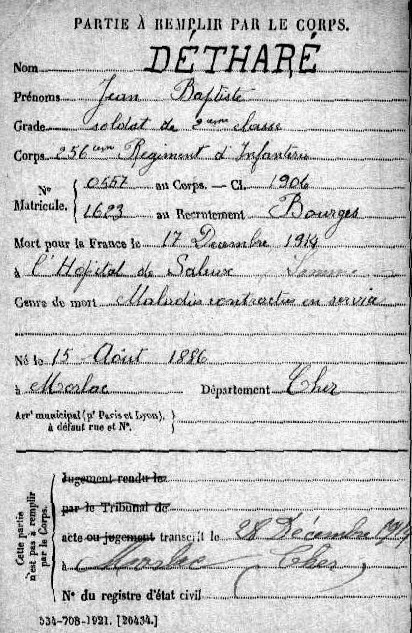 PARTIE À REMPLIR PAR LE CORPS.
Nom DÉTHARÉ
Prénoms Jean Baptiste
Grade soldat de 2eme classe
Corps 256eme Régiment d'Infanterie
N° Matricule. { 0557 au Corps. — Cl. 1906
1623 au Recrutement Bourges
Mort pour la France le 17 Décembre 1914
à l'Hopital de Saleux Somme
Genre de mort Maladie contractée en service
Né le 15 Août 1886
à Morlac Département Cher
Arrt municipal (pr Paris et Lyon), }
à défaut rue et N°.
Cette partie n'est pas à remplir par le Corps.
Jugement rendu le
par le Tribunal de
acte ou jugement transcrit le 28 Décembre 1914
à Morlac (Cher)
N° du registre d'état civil
534-708-1921. [26434.]